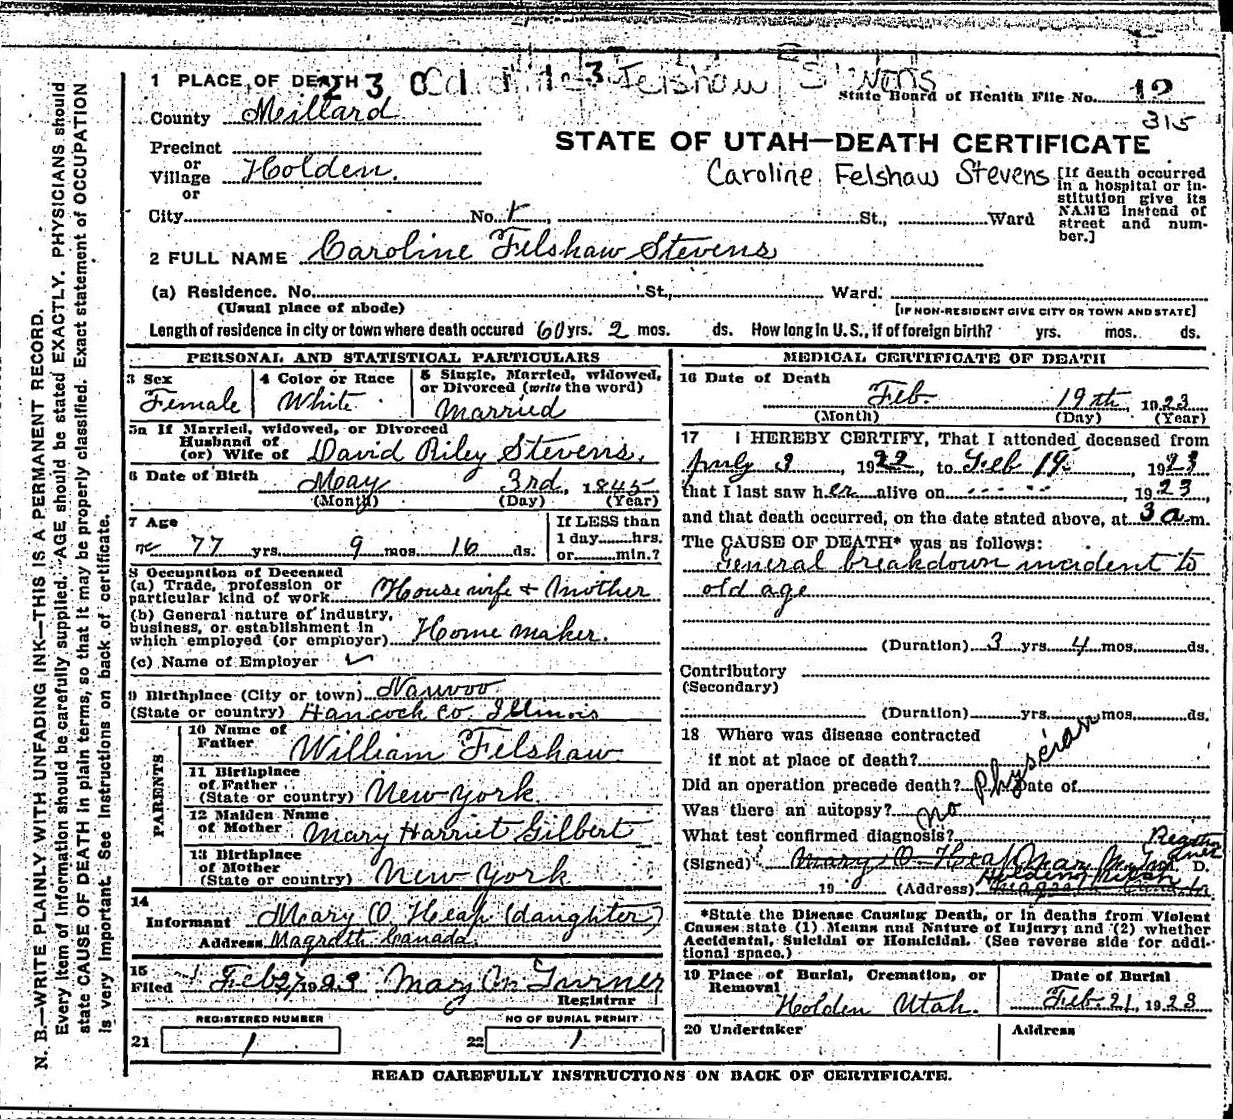 1 PLACE OF DEATH
County Meillard
Precinct
or
Village Holden.
or
City No. St., Ward
Felshaw
State Board of Health File No. 12
315
STATE OF UTAH—DEATH CERTIFICATE
Caroline Felshaw Stevens
[If death occurred in a hospital or institution give its NAME instead of street and number.]
2 FULL NAME Caroline Felshaw Stevens
(a) Residence. No. St., Ward.
(Usual place of abode) [IF NON-RESIDENT GIVE CITY OR TOWN AND STATE]
Length of residence in city or town where death occured 60 yrs. 2 mos. ds. How long in U.S., if of foreign birth? yrs. mos. ds.
PERSONAL AND STATISTICAL PARTICULARS
3 Sex
Female
4 Color or Race
White
5 Single, Married, widowed,
or Divorced (write the word)
Married
5a If Married, widowed, or Divorced
Husband of
(or) Wife of David Riley Stevens.
6 Date of Birth May 3rd, 1845
(Month) (Day) (Year)
7 Age
77 yrs. 9 mos. 16 ds.
If LESS than
1 day......hrs.
or......min.?
8 Occupation of Deceased
(a) Trade, profession or
particular kind of work Housewife & Mother
(b) General nature of industry,
business, or establishment in
which employed (or employer) Home maker.
(c) Name of Employer ✓
9 Birthplace (City or town) Nauvoo
(State or country) Hancock Co. Illinois
PARENTS
10 Name of
Father William Felshaw
11 Birthplace
of Father
(State or country) New York
12 Maiden Name
of Mother Mary Harriet Gilbert
13 Birthplace
of Mother
(State or country) New York
14
Informant Mary O. Heap (daughter)
Address Magrath Canada.
15
Filed Feb 27, 1923 Mary Turner
Registrar
REGISTERED NUMBER
21 1
NO OF BURIAL PERMIT
22 1
MEDICAL CERTIFICATE OF DEATH
16 Date of Death
Feb. 19th, 1923
(Month) (Day) (Year)
17 I HEREBY CERTIFY, That I attended deceased from
July 3, 1922, to Feb 19, 1923
that I last saw her alive on 1923,
and that death occurred, on the date stated above, at 3 a.m.
The CAUSE OF DEATH* was as follows:
General breakdown incident to
old age
(Duration) 3 yrs. 4 mos. ds.
Contributory
(Secondary)
(Duration) yrs. mos. ds.
18 Where was disease contracted
if not at place of death?
Did an operation precede death? Date of
Was there an autopsy? no
physician
What test confirmed diagnosis?
(Signed) Mary O. Heap D.
19 (Address)
*State the Disease Causing Death, or in deaths from Violent
Causes state (1) Means and Nature of Injury; and (2) whether
Accidental, Suicidal or Homicidal. (See reverse side for addi-
tional space.)
19 Place of Burial, Cremation, or
Removal
Holden Utah.
Date of Burial
Feb. 21, 1923
20 Undertaker
Address
READ CAREFULLY INSTRUCTIONS ON BACK OF CERTIFICATE.
N. B.—WRITE PLAINLY WITH UNFADING INK—THIS IS A PERMANENT RECORD.
Every item of information should be carefully supplied. AGE should be stated EXACTLY. PHYSICIANS should
state CAUSE OF DEATH in plain terms, so that it may be properly classified. Exact statement of OCCUPATION
is very important. See Instructions on back of certificate.